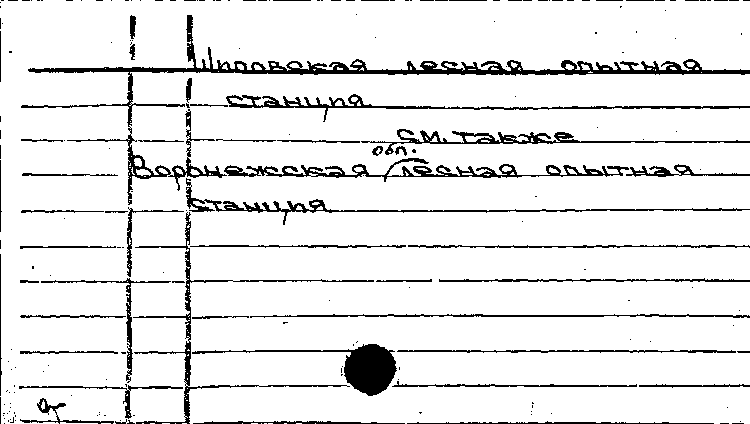 Шиповская лесная опытная
станция
см. также
обл.
Воронежская лесная опытная
станция